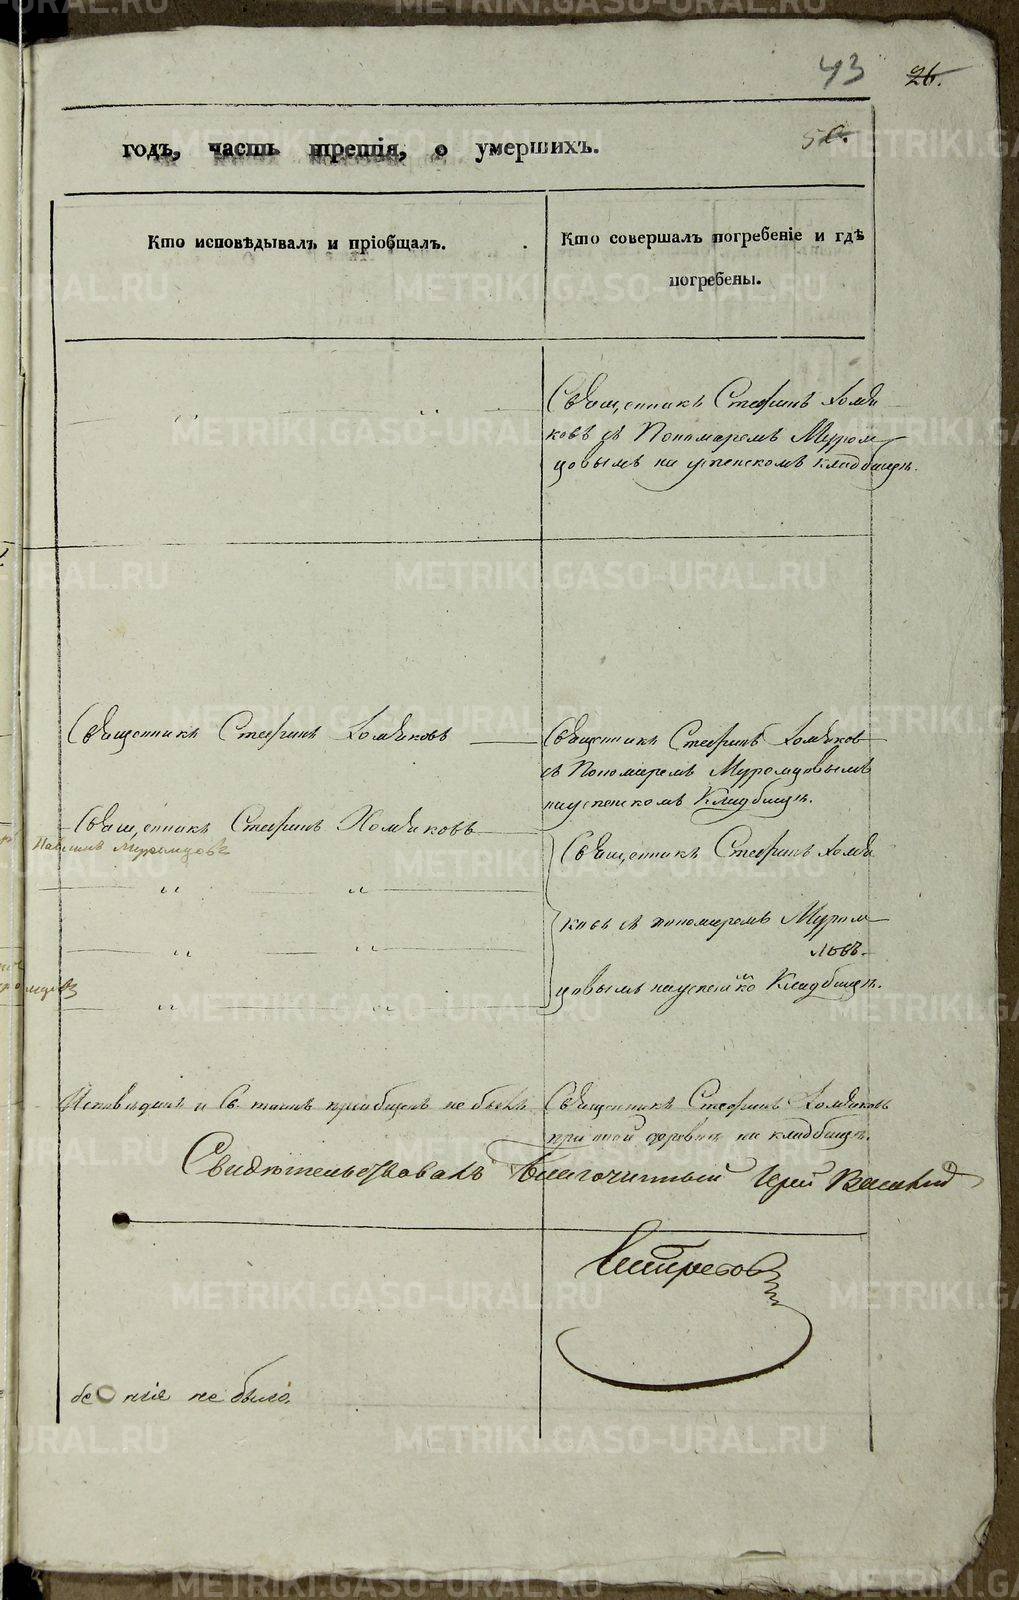 43 26.
годъ, часть третія, о умершихъ.
Кто исповѣдывалъ и пріобщалъ.
Кто совершалъ погребеніе и гдѣ
погребены.
Священникъ Стефанъ Хомя
ковъ съ Пономаремъ Муром
цовымъ на успенскомъ кладбищѣ.
Священникъ Стефанъ Хомяковъ
Священникъ Стефанъ Хомяков
съ Пономаремъ Муромцовымъ
на успенскомъ Кладбищѣ.
Священникъ Стефанъ Хомяковъ
Муромцовъ
Священникъ Стефанъ Хомя
" "
ковъ съ пономаремъ Муром
" "
цовымъ на Кладбищѣ.
" "
Исповѣданъ и Св. таинъ пріобщенъ не былъ
Священникъ Стефанъ Хомяковъ
при той церкви на кладбищѣ.
Свидѣтельствовалъ Благочинный Іерей
нія не было.
METRIKI.GASO-URAL.RU